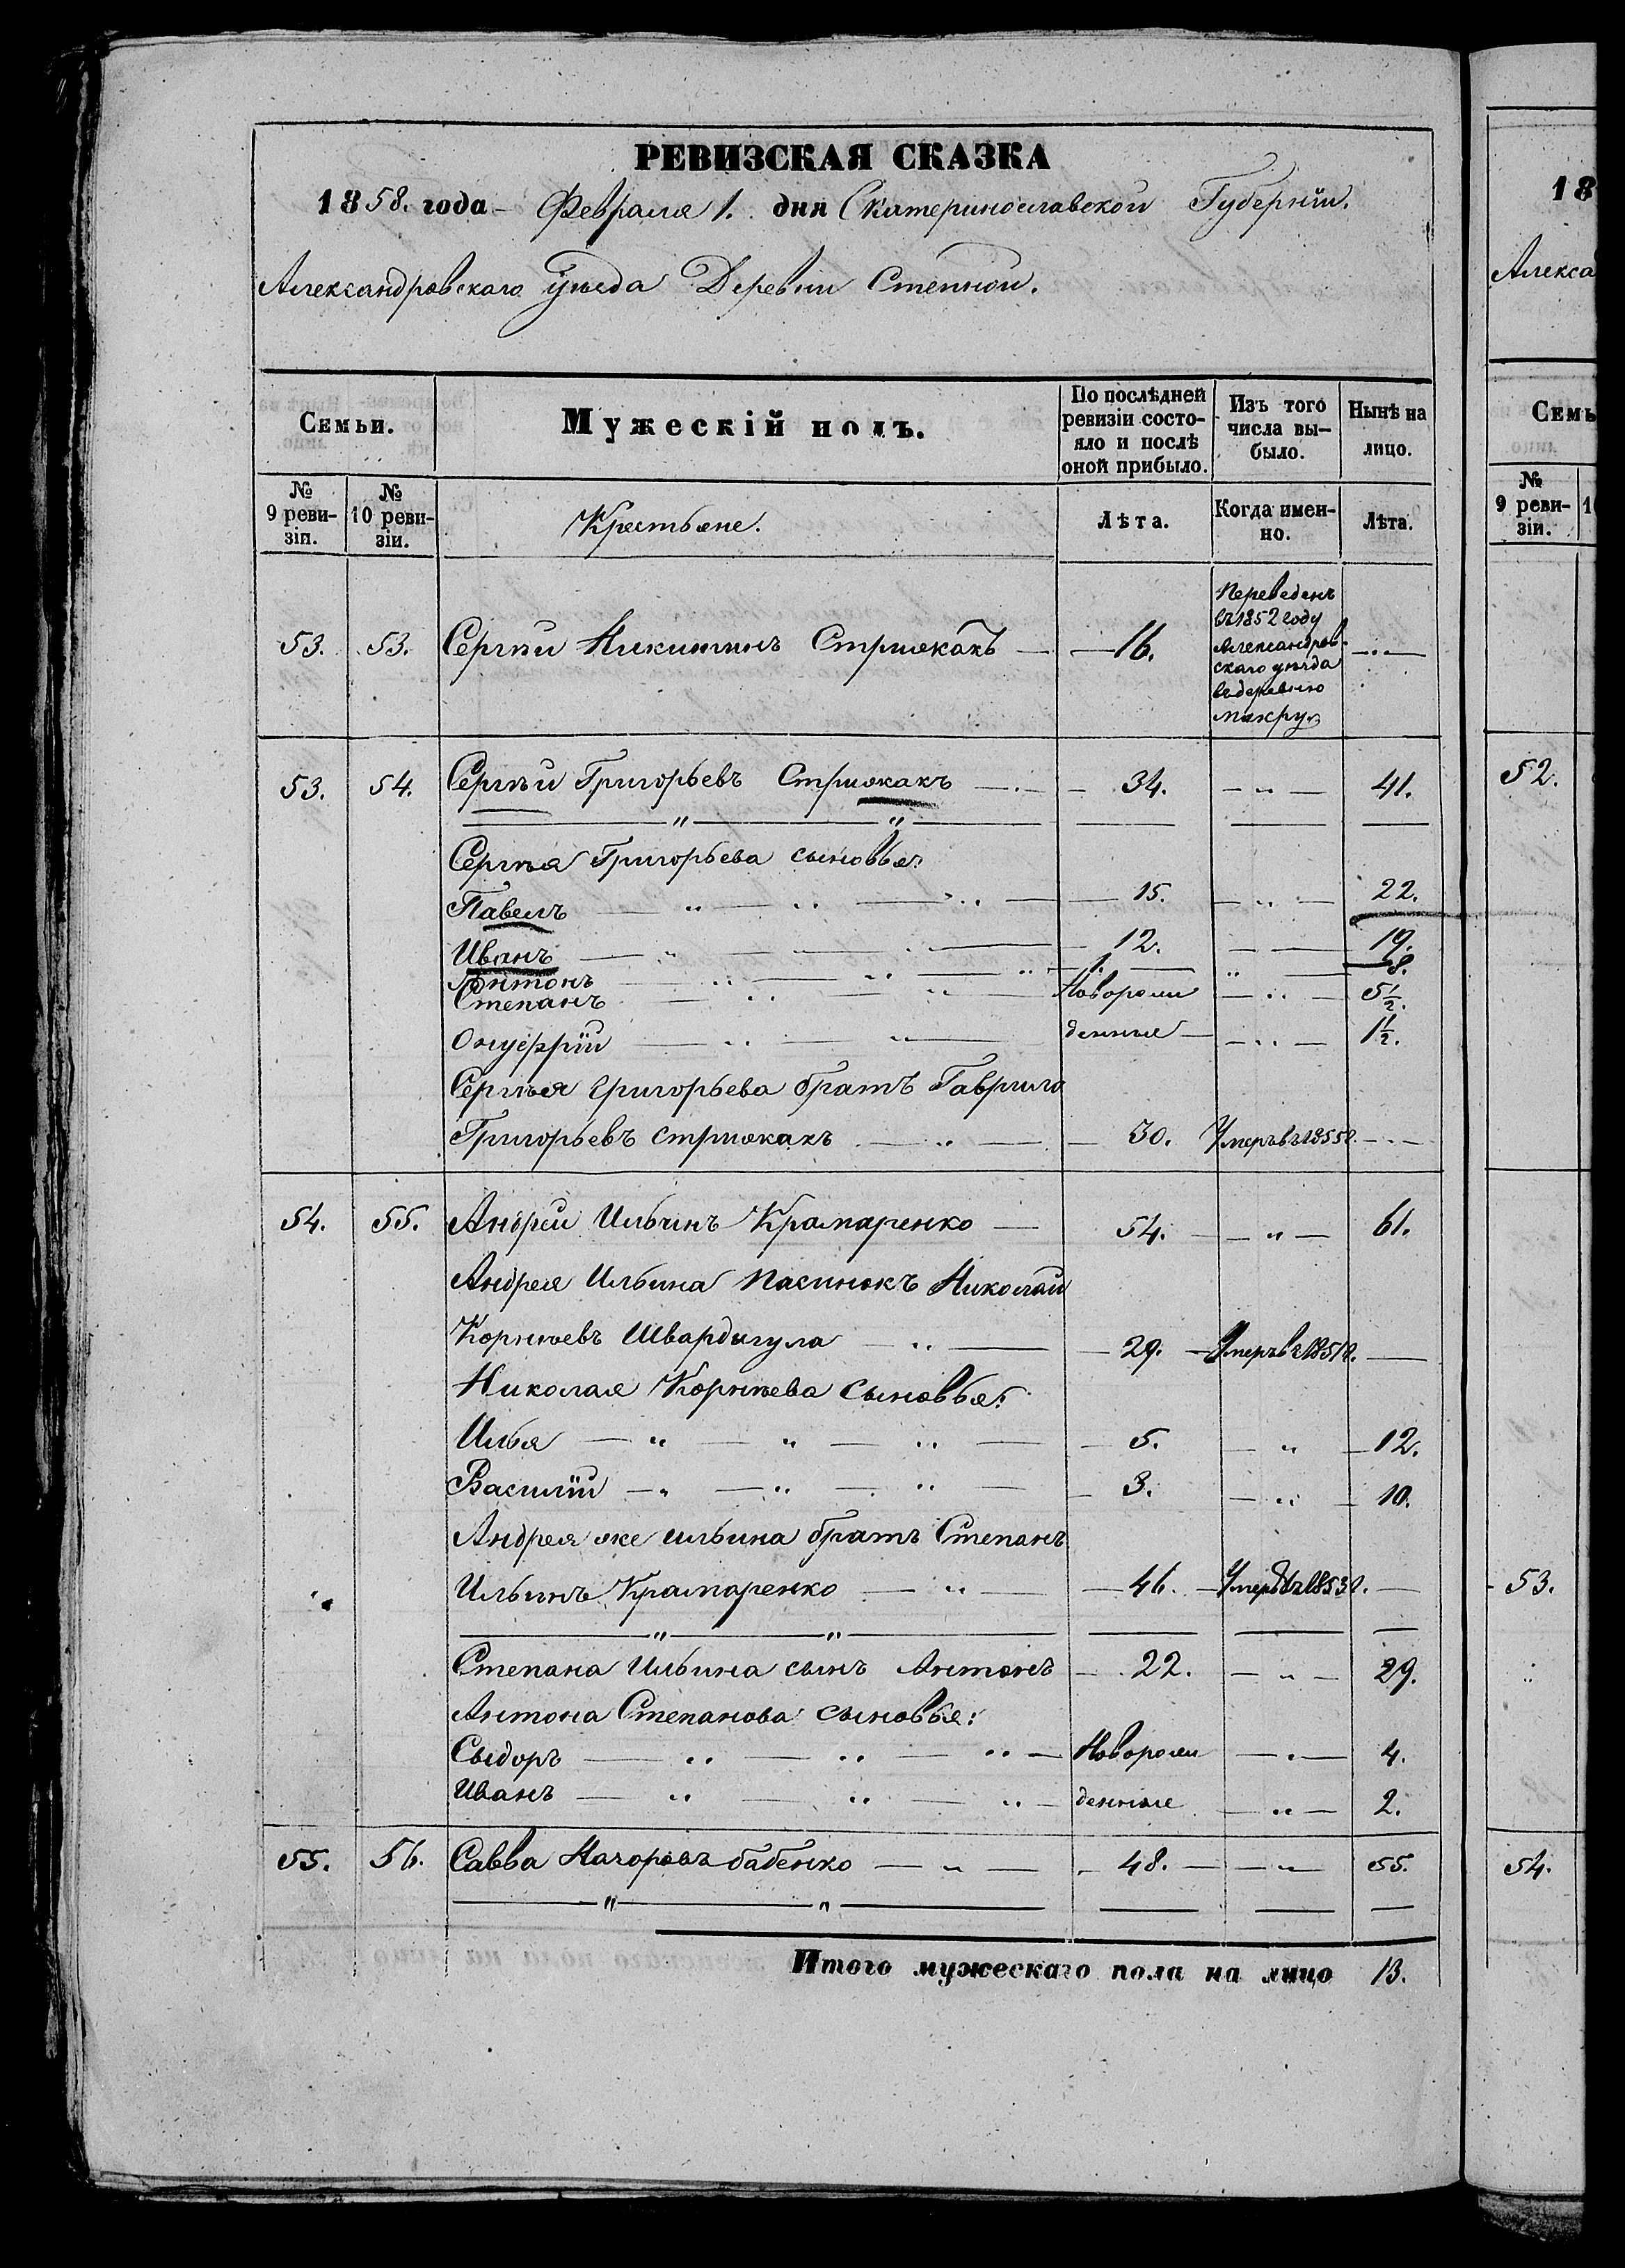 РЕВИЗСКАЯ СКАЗКА
1858. года Февраля 1. дня Екатеринославской Губерніи.
Александровскаго уѣзда Деревни Степной.
Семьи.
Мужескій полъ.
По послѣдней ревизіи состояло и послѣ оной прибыло.
Изъ того числа выбыло.
Нынѣ на лицо.
№ 9 ревизіи.
№ 10 ревизіи.
Крестьяне.
Лѣта.
Когда именно.
Лѣта.
53. 53. Сергѣй Никитинъ Стрижакъ — 16.
Переведенъ
въ 1852 году
Александров-
скаго уѣзда
въ деревню
53. 54. Сергѣй Григорьевъ Стрижакъ — 34. — „ — 41.
Сергѣя Григорьева сыновья:
Павелъ — 15. — 22.
Иванъ — 12. — 19.
Антонъ — 1. — 8.
Степанъ — Новорож — 5½.
Онуфрій — денные — 1½.
Сергѣя Григорьева братъ Гаврило
Григорьевъ Стрижакъ — 30. Умеръ въ 1855 г.
54. 55. Андрей Ильинъ Крамаренко — 54. — „ — 61.
Андрея Ильина пасынокъ Николай
Корнѣевъ Швардыгула — 29. Умеръ въ 1851 г. —
Николая Корнѣева сыновья:
Илья — 5. — „ — 12.
Василій — 3. — „ — 10.
Андрея же Ильина братъ Степанъ
Ильинъ Крамаренко — 46. Умеръ въ 1853 г. —
Степана Ильина сынъ Антонъ — 22. — „ — 29.
Антона Степанова сыновья:
Сыдоръ — Новорож — 4.
Иванъ — денные — 2.
55. 56. Савва Бабенко — 48. — 55.
Итого мужескаго пола на лицо 13.
18
Алекса
Семь
№ 9 ревизіи.
52.
53.
54.